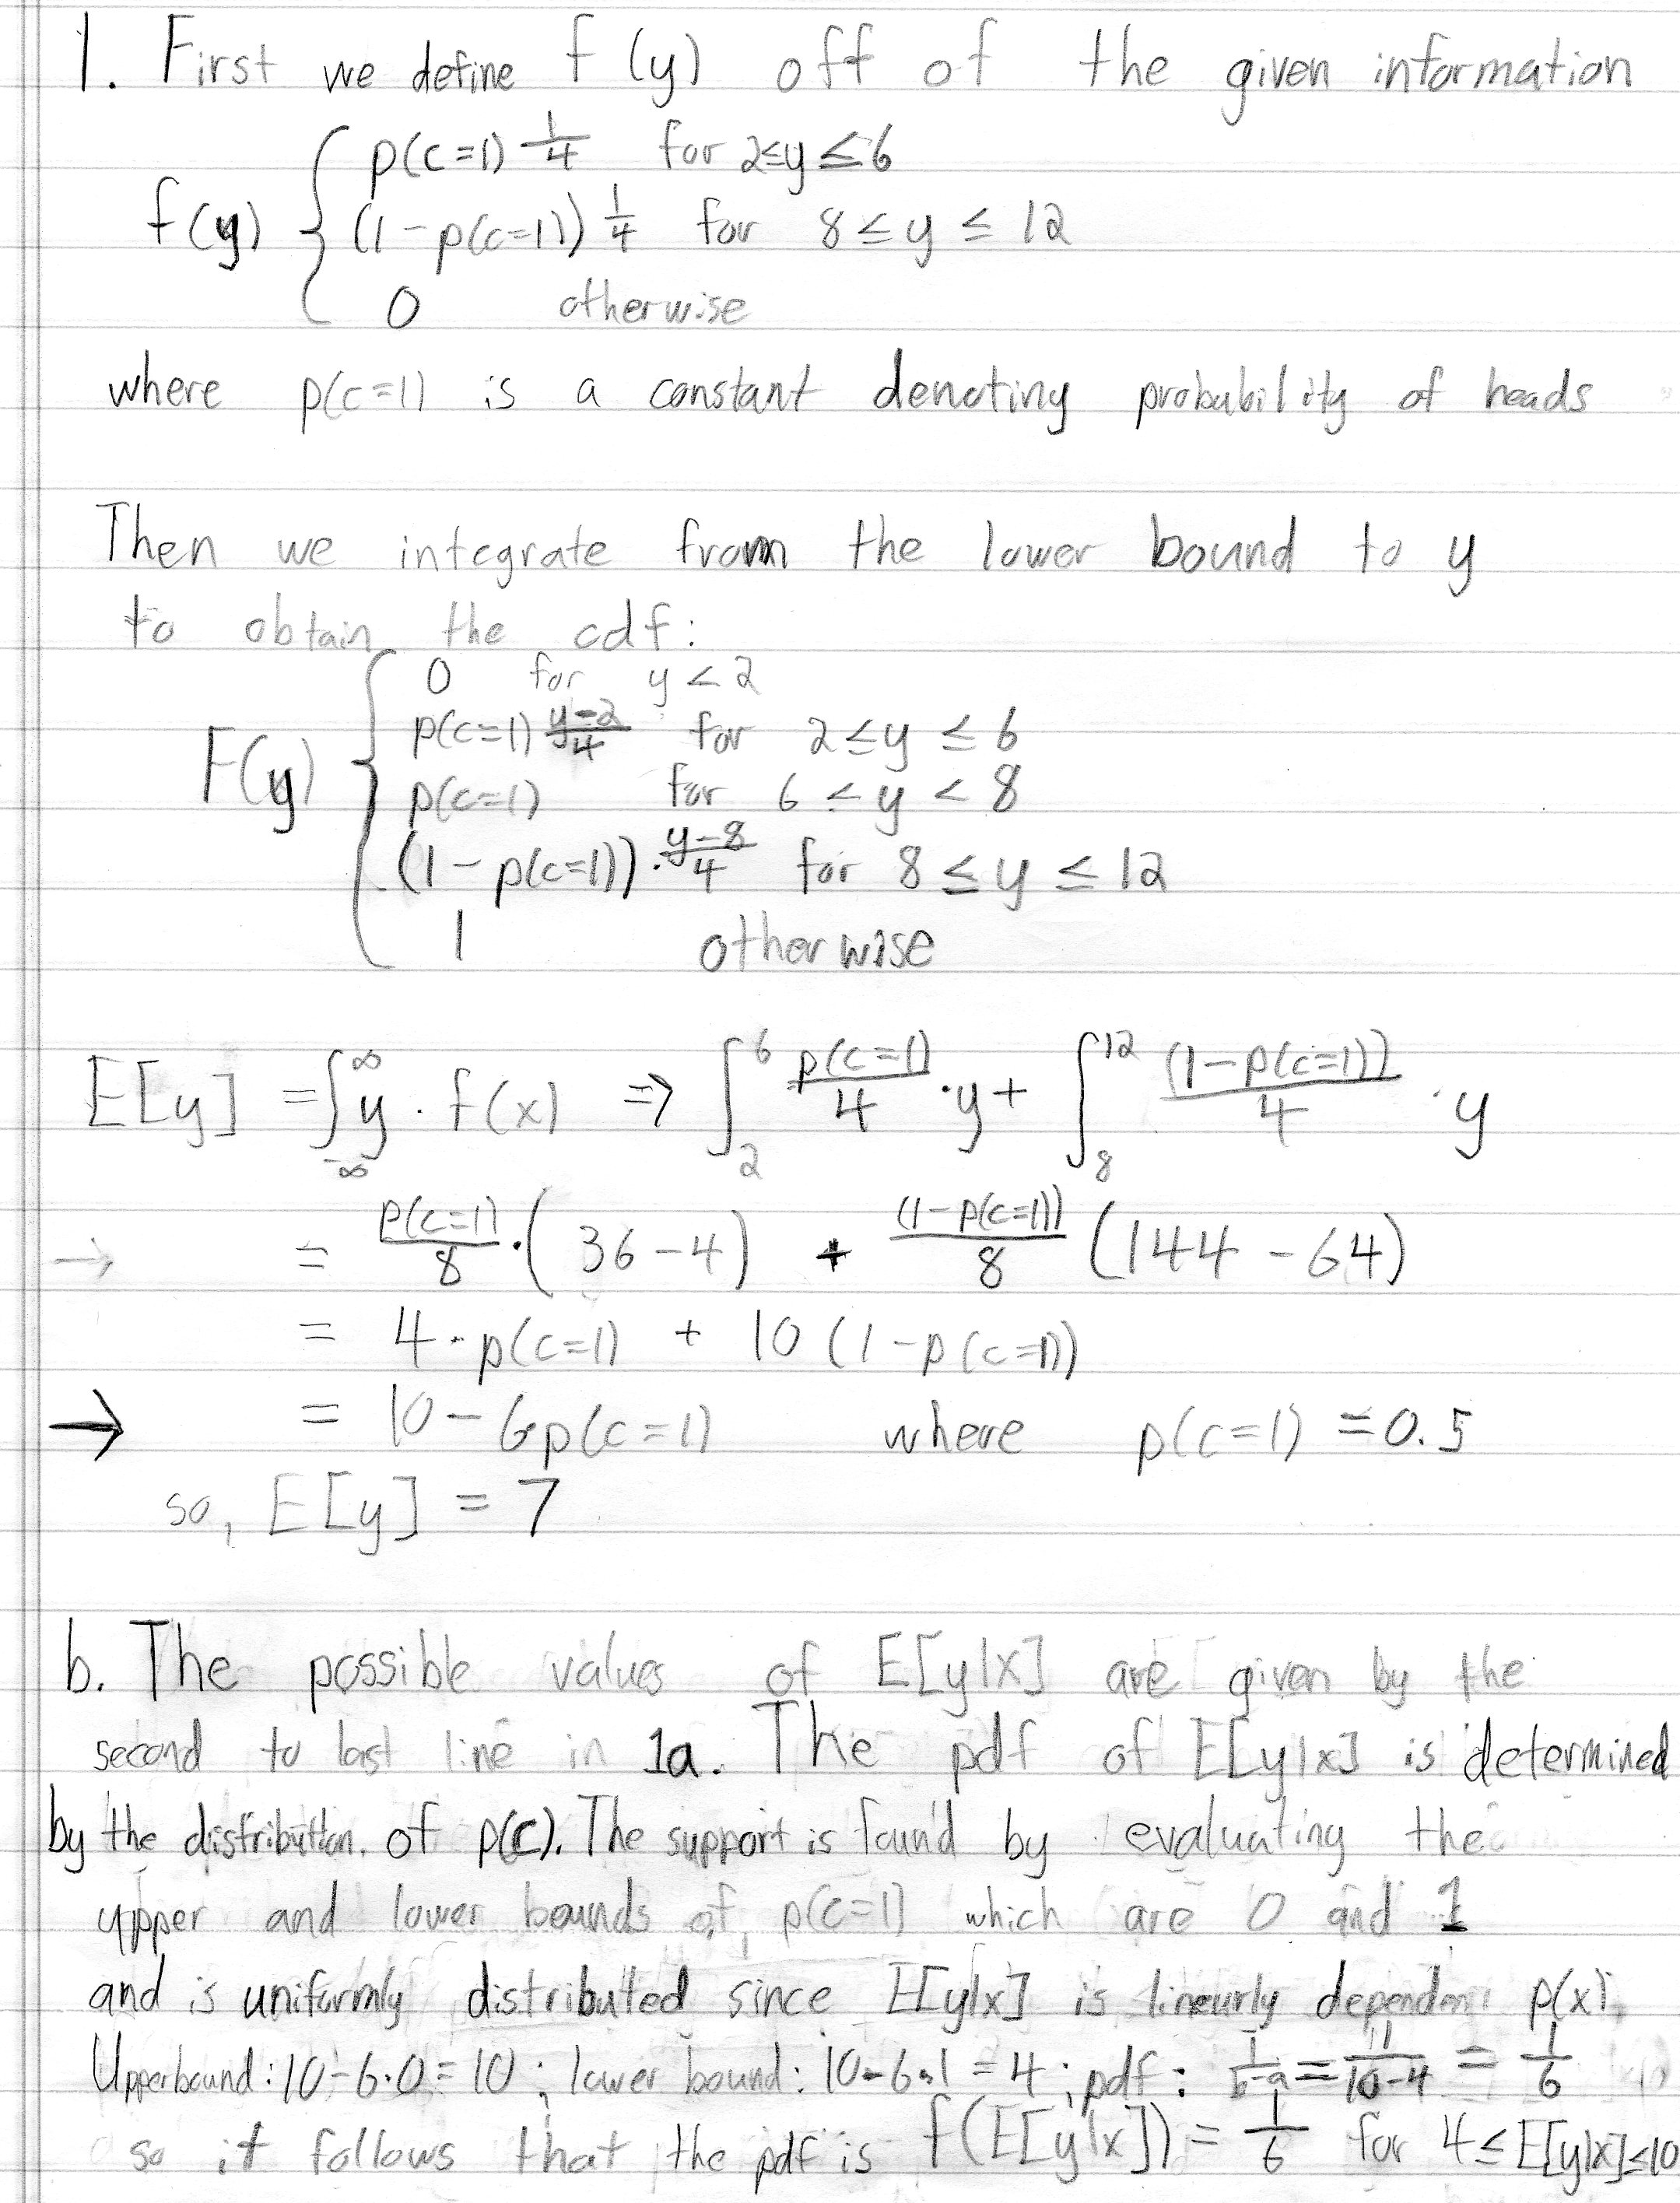 1. First we define f(y) off of the given information
p(c=1) 1/4 for 2≤y≤6
f(y) { (1-p(c=1)) 1/4 for 8≤y≤12
0 otherwise
where p(c=1) is a constant denoting probability of heads
Then we integrate from the lower bound to y
to obtain the cdf:
0 for y<2
p(c=1) (y-2)/4 for 2≤y≤6
F(y) { p(c=1) for 6≤y<8
(1-p(c=1))·(y-8)/4 for 8≤y≤12
1 otherwise
E[y] = ∫_{-∞}^{∞} y·f(x) ⇒ ∫_2^6 p(c=1)/4 ·y + ∫_8^12 (1-p(c=1))/4 ·y
→ = p(c=1)/8 ·(36-4) + (1-p(c=1))/8 (144-64)
= 4·p(c=1) + 10(1-p(c=1))
→ = 10-6p(c=1) where p(c=1)=0.5
so, E[y] = 7
b. The possible values of E[y|x] are given by the
second to last line in 1a. The pdf of E[y|x] is determined
by the distribution. of p(c). The support is found by evaluating the
upper and lower bounds of p(c=1) which are 0 and 1
and is uniformly distributed since E[y|x] is linearly dependen p(x)
Upperbound: 10-6·0=10; lower bound: 10-6·1=4; pdf: 1/(b-a) = 1/(10-4) = 1/6
so it follows that the pdf is f(E[y|x]) = 1/6 for 4≤E[y|x]≤10